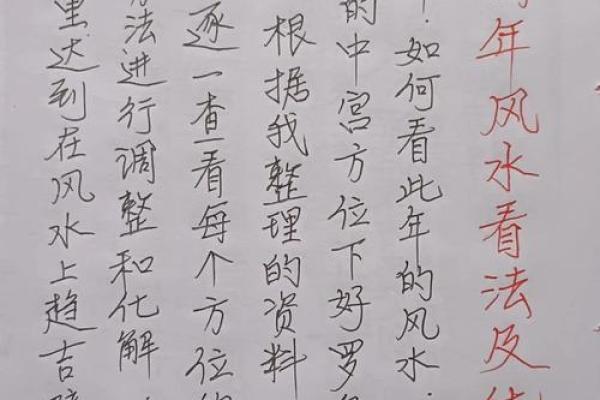 年风水看法及
如何看此年的风水
的中宫方位下好罗
根据我整理的资料
逐一查看每个方位
法进行调整和化解
里达到在风水上趋吉